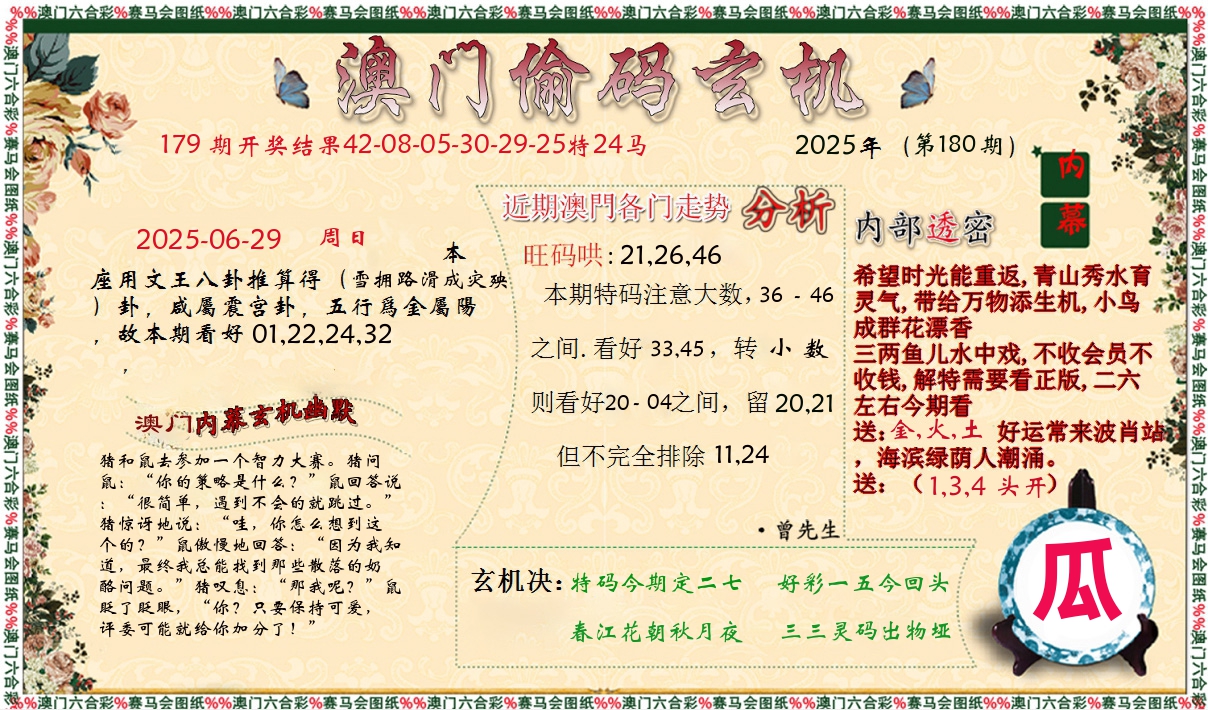 %%澳门六合彩%赛马会图纸%%澳门六合彩%赛马会图纸%%澳门六合彩%赛马会图纸%%澳门六合彩%赛马会图纸%%澳门六合彩%赛马会图纸%%澳门六合彩%赛马会图纸%%
澳门偷码玄机
179 期开奖结果42-08-05-30-29-25特24马
2025年（第180期）
内幕
2025-06-29 周日
本
座用文王八卦推算得（雪拥路滑成灾殃
）卦，咸屬震宫卦，五行爲金屬陽
，故本期看好 01,22,24,32
，
澳门内幕玄机幽默
猪和鼠去参加一个智力大赛。猪问
鼠：“你的策略是什么？”鼠回答说
：“很简单，遇到不会的就跳过。”
猪惊讶地说：“哇，你怎么想到这
个的？”鼠傲慢地回答：“因为我知
道，最终我总能找到那些散落的奶
酪问题。”猪叹息：“那我呢？”鼠
眨了眨眼，“你？只要保持可爱，
评委可能就给你加分了！”
近期澳門各门走势 分析
旺码哄：21,26,46
本期特码注意大数，36 - 46
之间. 看好 33,45，转 小 数
则看好20 - 04之间，留 20,21
但不完全排除 11,24
·曾先生
内部透密
希望时光能重返, 青山秀水育
灵气, 带给万物添生机, 小鸟
成群花漂香
三两鱼儿水中戏, 不收会员不
收钱, 解特需要看正版, 二六
左右今期看
送：金,火,土 好运常来波肖站
，海滨绿荫人潮涌。
送：（1,3,4 头开）
玄机决：特码今期定二七 好彩一五今回头
春江花朝秋月夜 三三灵码出物垭
瓜
%%澳门六合彩%赛马会图纸%%澳门六合彩%赛马会图纸%%澳门六合彩%赛马会图纸%%澳门六合彩%赛马会图纸%%澳门六合彩%赛马会图纸%%澳门六合彩%赛马会图纸%%